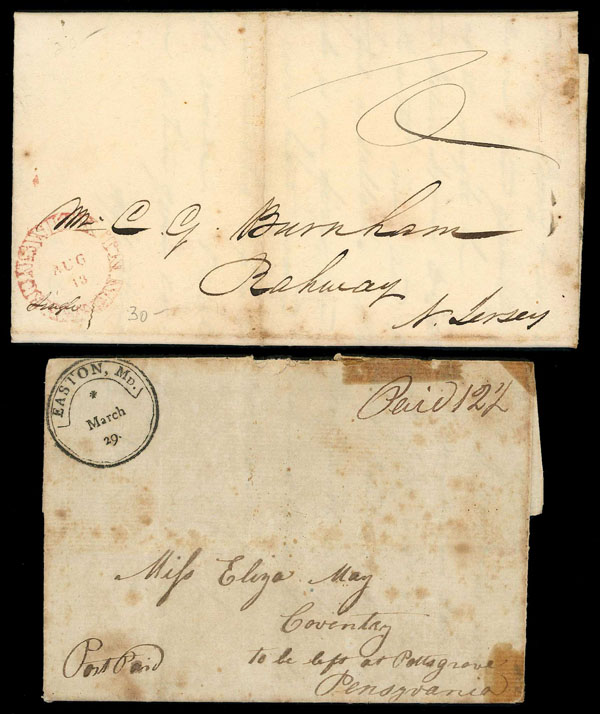 6
Mr. C G. Burnham
Rahway
N. Jersey
AUG
13
Single
30-
EASTON, MD.
*
March
29.
Paid 12½
Miss Eliza May
Coventry
to be left at Pottsgrove
Pensyvania
Post Paid